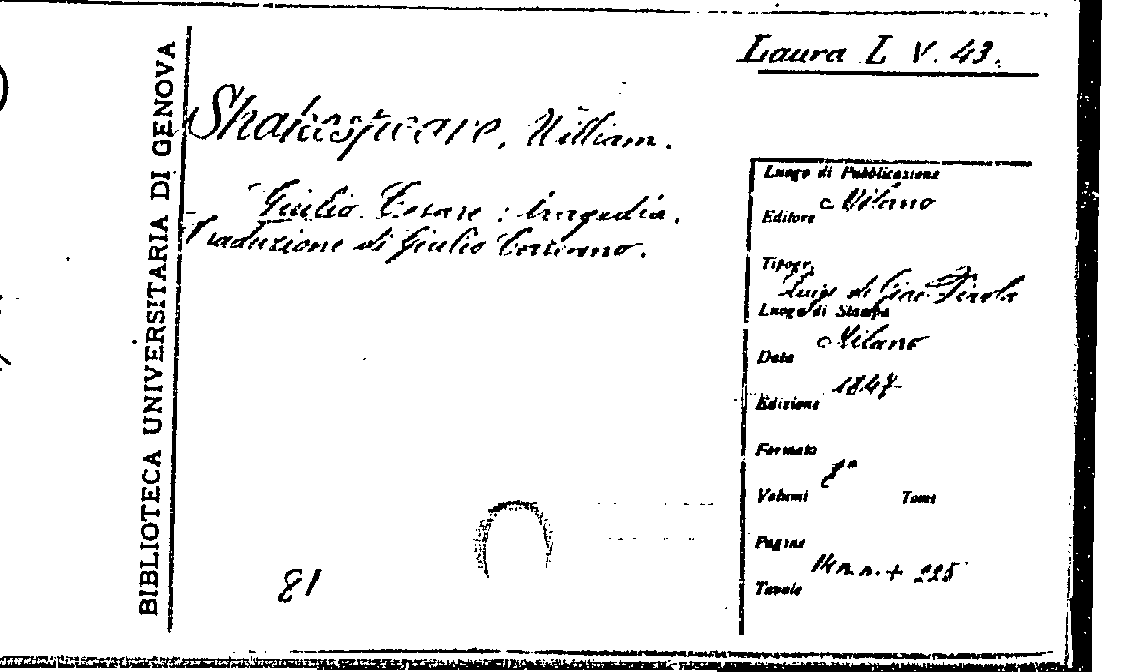 BIBLIOTECA UNIVERSITARIA DI GENOVA
Laura L V. 43.
Shakespeare, William.
Giulio Cesare: tragedia.
Traduzione di Giulio Carcano.
81
Luogo di Pubblicazione
Milano
Editore
Tipogr.
Luigi di Giac. Pirola
Luogo di Stampa
Milano
Data
1847
Edizione
Formato
8°
Volumi Tomi
Pagine
n.n. + 225
Tavole